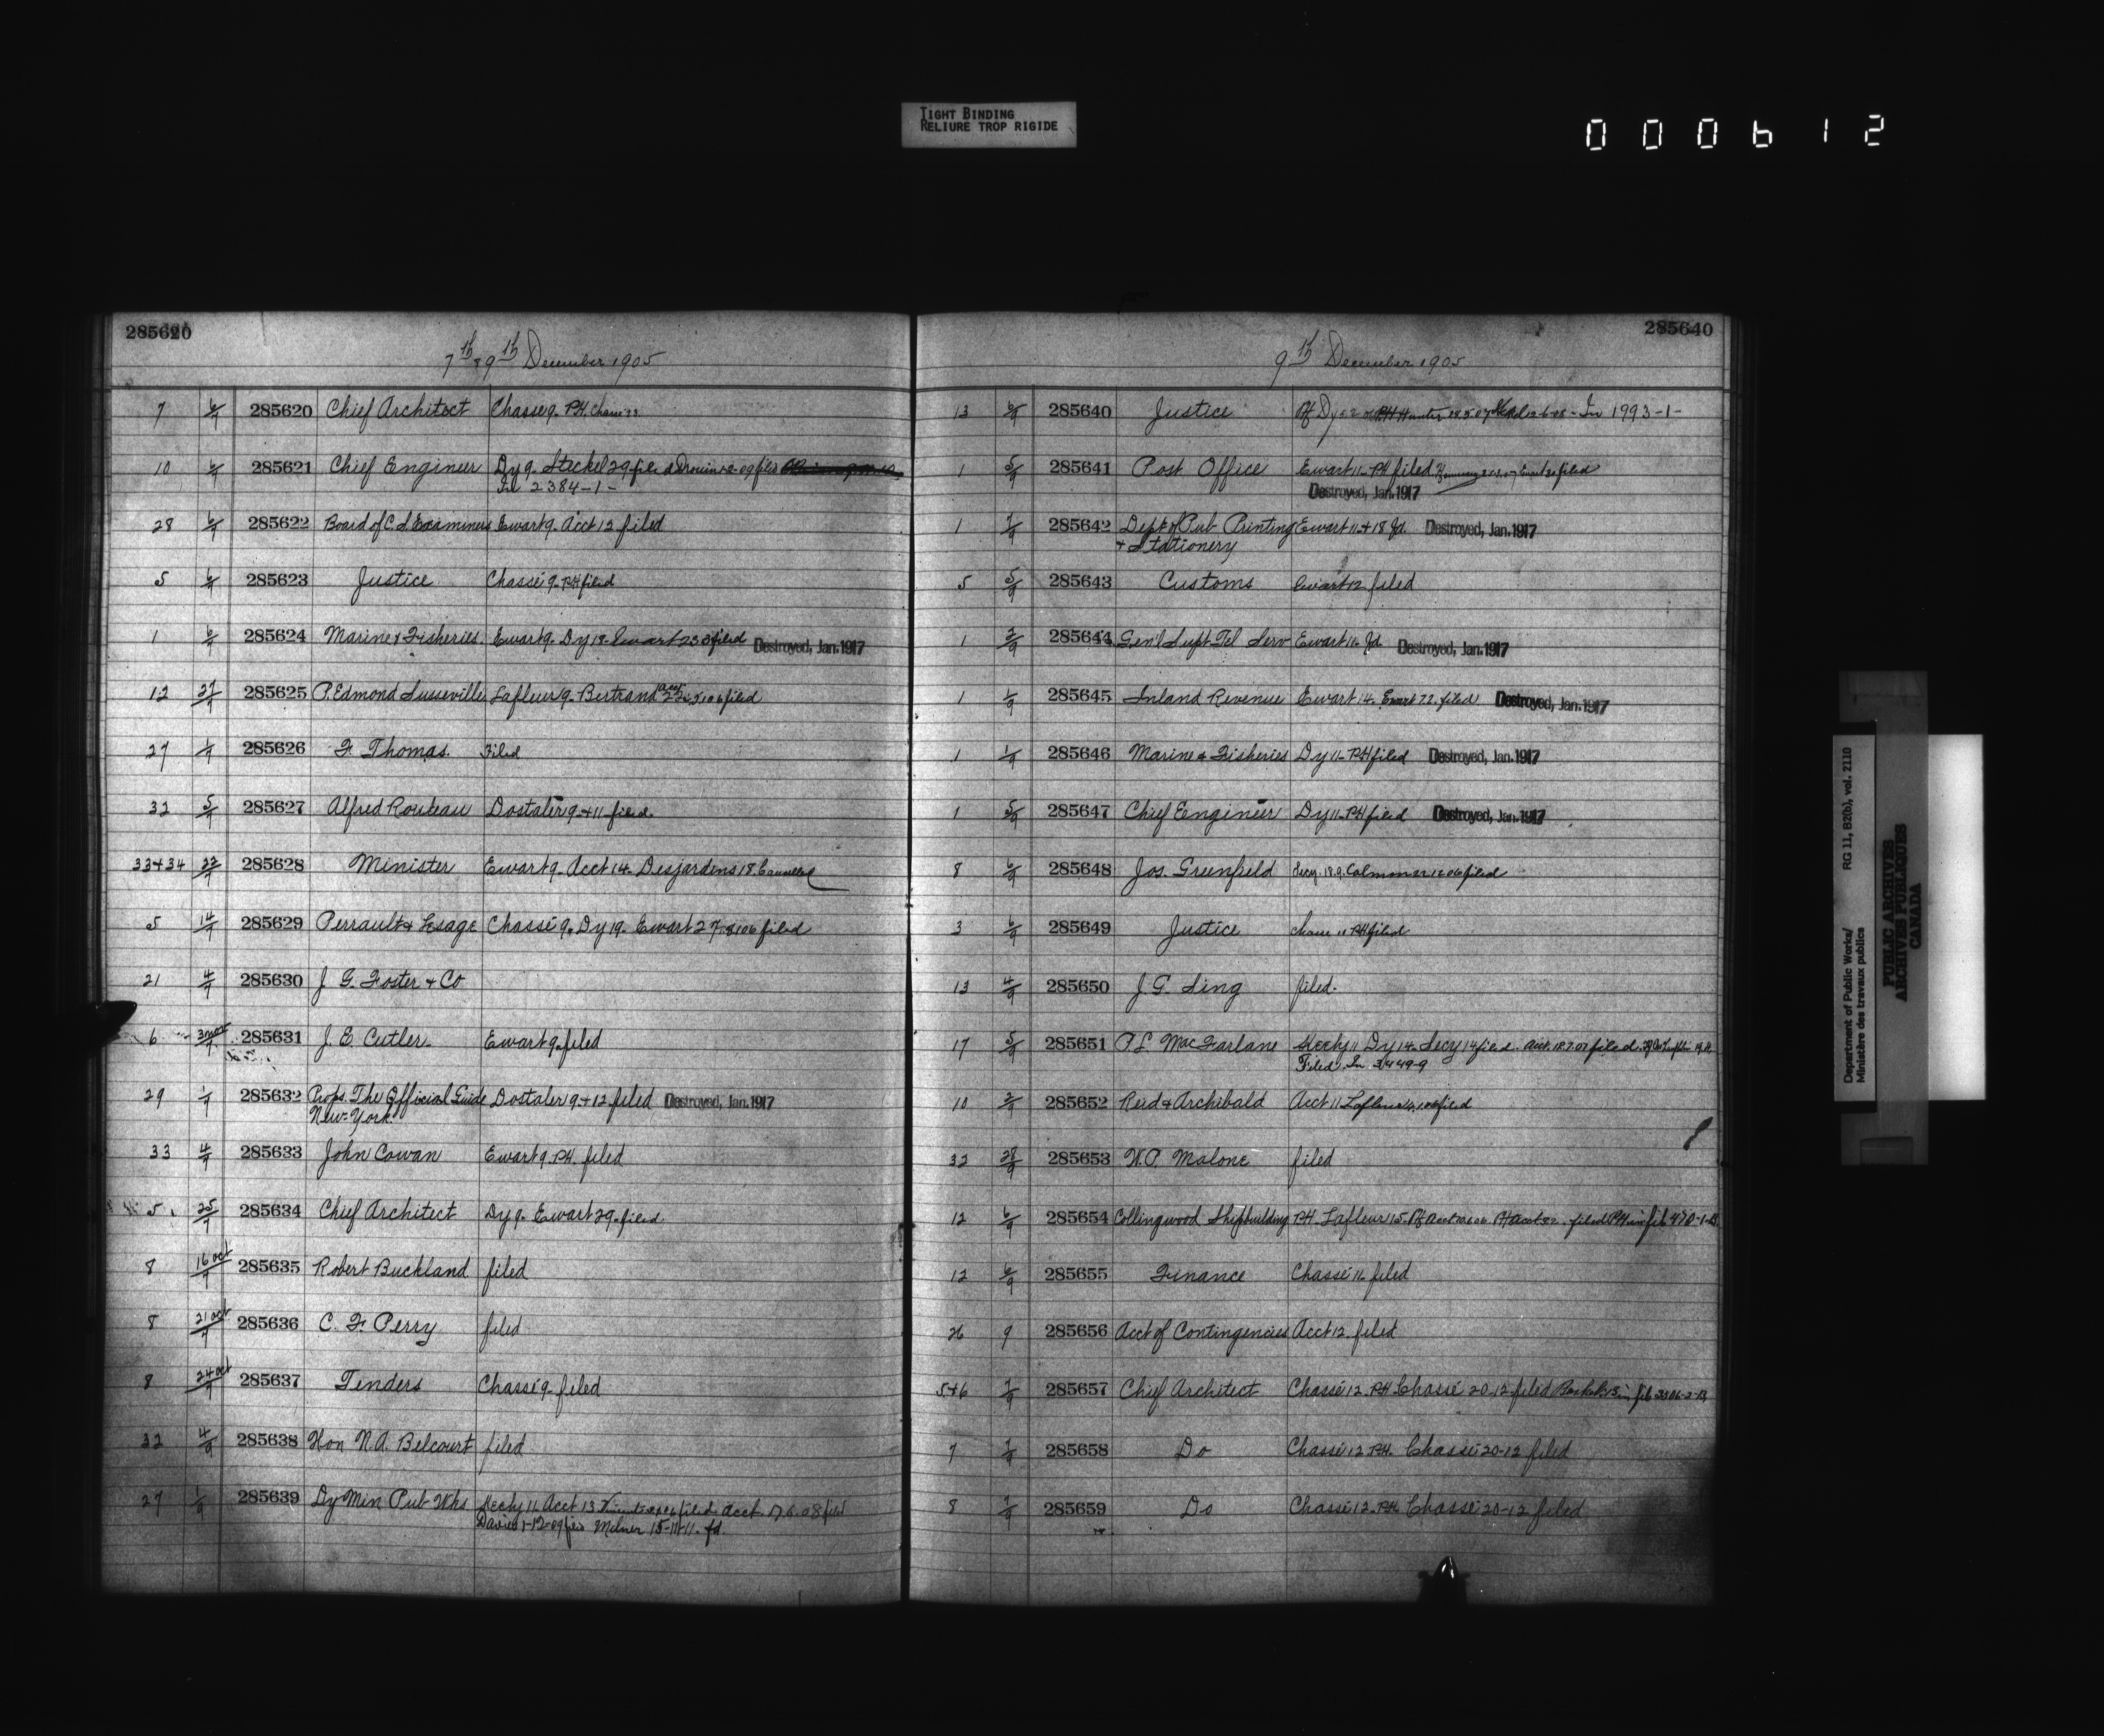 TIGHT BINDING
RELIURE TROP RIGIDE
000612
285620
7th & 9th December 1905
7 6/7 285620 Chief Architect Chassé 9. P.H. Chassé
10 6/7 285621 Chief Engineer Dy 9. Steckel 29 filed Drouin 09 filed
In 2384-1-
28 6/7 285622 Board of C. S. Examiners Ewart 9. Acct 12 filed
5 6/7 285623 Justice Chassé 9. P.H. filed
1 6/7 285624 Marine & Fisheries. Ewart 9. Dy 19. Ewart 23 filed Destroyed, Jan. 1917
12 27/7 285625 P. Edmond Lusseville Lafleur 9. Bertrand filed
27 1/7 285626 F. Thomas. Filed
32 5/7 285627 Alfred Routeau Dostaler 9 + 11 filed.
33+34 22/7 285628 Minister Ewart 9. Acct 14. Desjardins 18. Cancelled
5 14/7 285629 Perrault & Lesage Chassé 9. Dy 19. Ewart 27 filed
21 4/7 285630 J. G. Foster & Co
6 3 nov/7 285631 J. E. Cutler. Ewart 9. filed
29 1/7 285632 Props. The Official Guide Dostaler 9 + 12 filed Destroyed, Jan. 1917
New-York.
33 4/7 285633 John Cowan Ewart 9. P.H. filed
5 25/7 285634 Chief Architect Dy 9. Ewart 29. filed.
8 16 oct/7 285635 Robert Buckland filed
8 21 oct/7 285636 C. F. Perry filed
8 24 oct/7 285637 Tenders Chassé 9. filed
32 4/9 285638 Hon N. A. Belcourt filed
27 1/9 285639 Dy Min Pub Wks Hecty 11. Acct 13 filed. Acct. 17.6.08 filed
Davies 1-12-09 filed Milner 15-11-11. fd.
285640
9th December 1905
13 6/9 285640 Justice In 1993-1-
1 5/9 285641 Post Office Ewart 11. P.H. filed Ewart 30 filed
Destroyed, Jan. 1917
1 7/9 285642 Dept of Pub Printing Ewart 11 + 18 fd. Destroyed, Jan. 1917
+ Stationery
5 5/9 285643 Customs Ewart 12 filed
1 2/9 285644 Gen'l Supt Tel Serv Ewart 11. fd. Destroyed, Jan. 1917
1 1/9 285645 Inland Revenue Ewart 14. Ewart 22. filed Destroyed, Jan. 1917
1 1/9 285646 Marine & Fisheries Dy 11. P.H. filed Destroyed, Jan. 1917
1 5/9 285647 Chief Engineer Dy 11. P.H. filed Destroyed, Jan. 1917
8 6/9 285648 Jos. Greenfield Secy. 18.9. filed
3 6/9 285649 Justice Chassé 11 P.H. filed
13 4/9 285650 J. G. Sing filed.
17 5/9 285651 P. L. MacFarlane Hecty 11 Dy 14. Secy 14 filed. Acct. 18.7.07 filed.
Filed In 3449-9
10 2/9 285652 Reid & Archibald Acct 11 Lafleur filed
32 28/9 285653 W. P. Malone filed
12 6/9 285654 Collingwood Shipbuilding P.H. Lafleur 15. filed P.H. in file 470-1-B.
12 6/9 285655 Finance Chassé 11. filed
26 9 285656 Acct of Contingencies Acct 12. filed
5+6 7/9 285657 Chief Architect Chassé 12. P.H. Chassé 20-12 filed
7 7/9 285658 Do Chassé 12. P.H. Chassé 20-12 filed
8 7/9 285659 Do Chassé 12. P.H. Chassé 20-12 filed
Department of Public Works/ RG 11, B2(b), vol. 2110
Ministère des travaux publics
PUBLIC ARCHIVES
ARCHIVES PUBLIQUES
CANADA